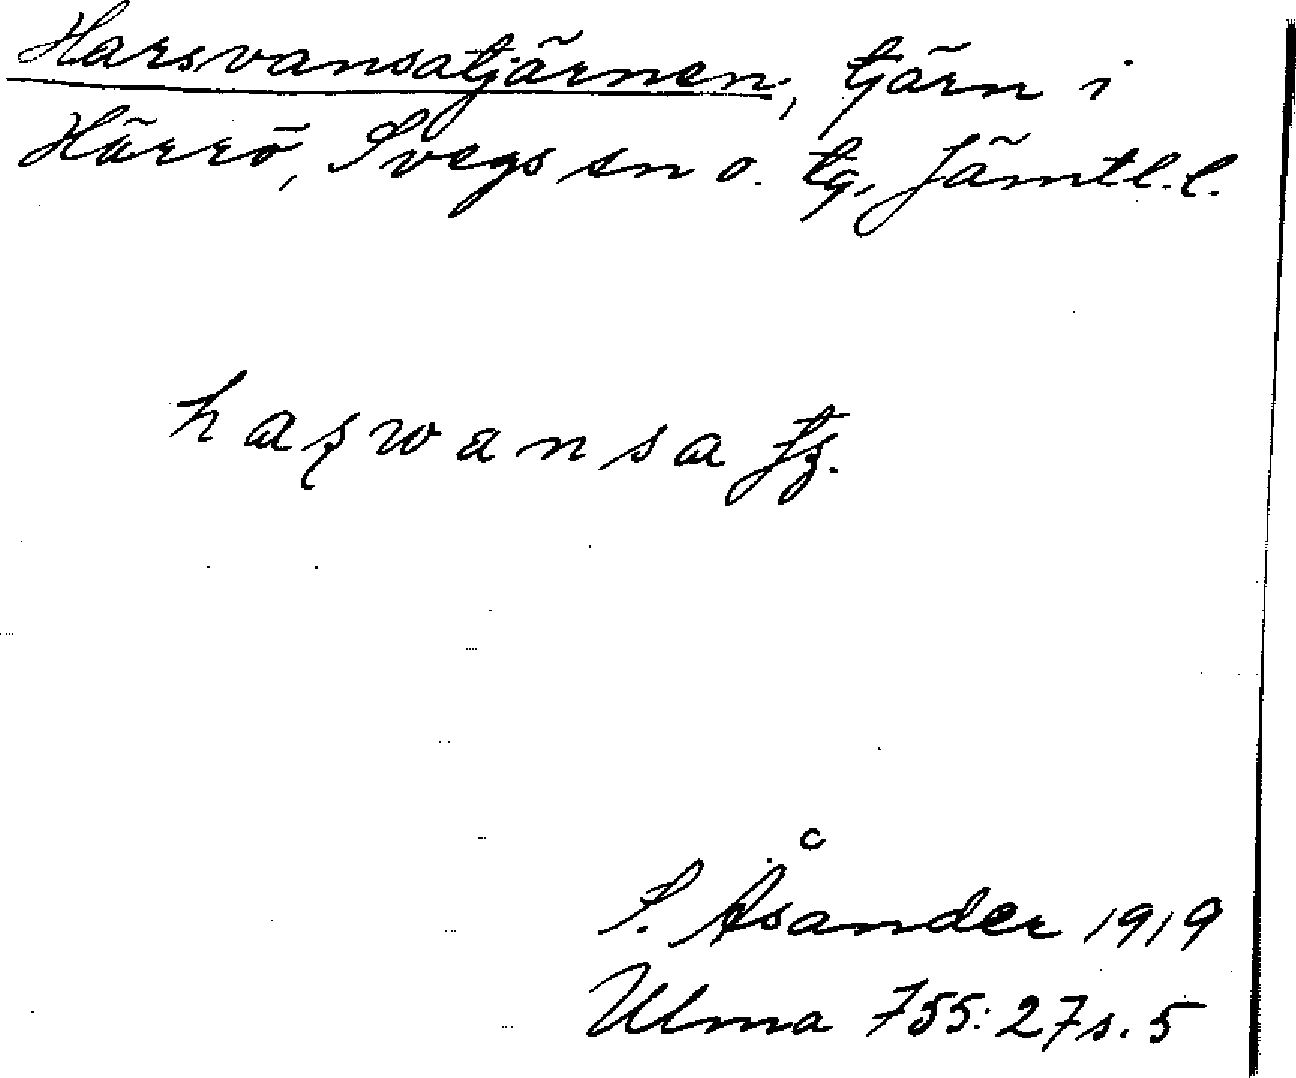 Harsvansatjärnen, tjärn i
Härrö, Svegs sn o. tg, Jämtl.l.
S. Åsander 1919
Ulma 755:27 s. 5